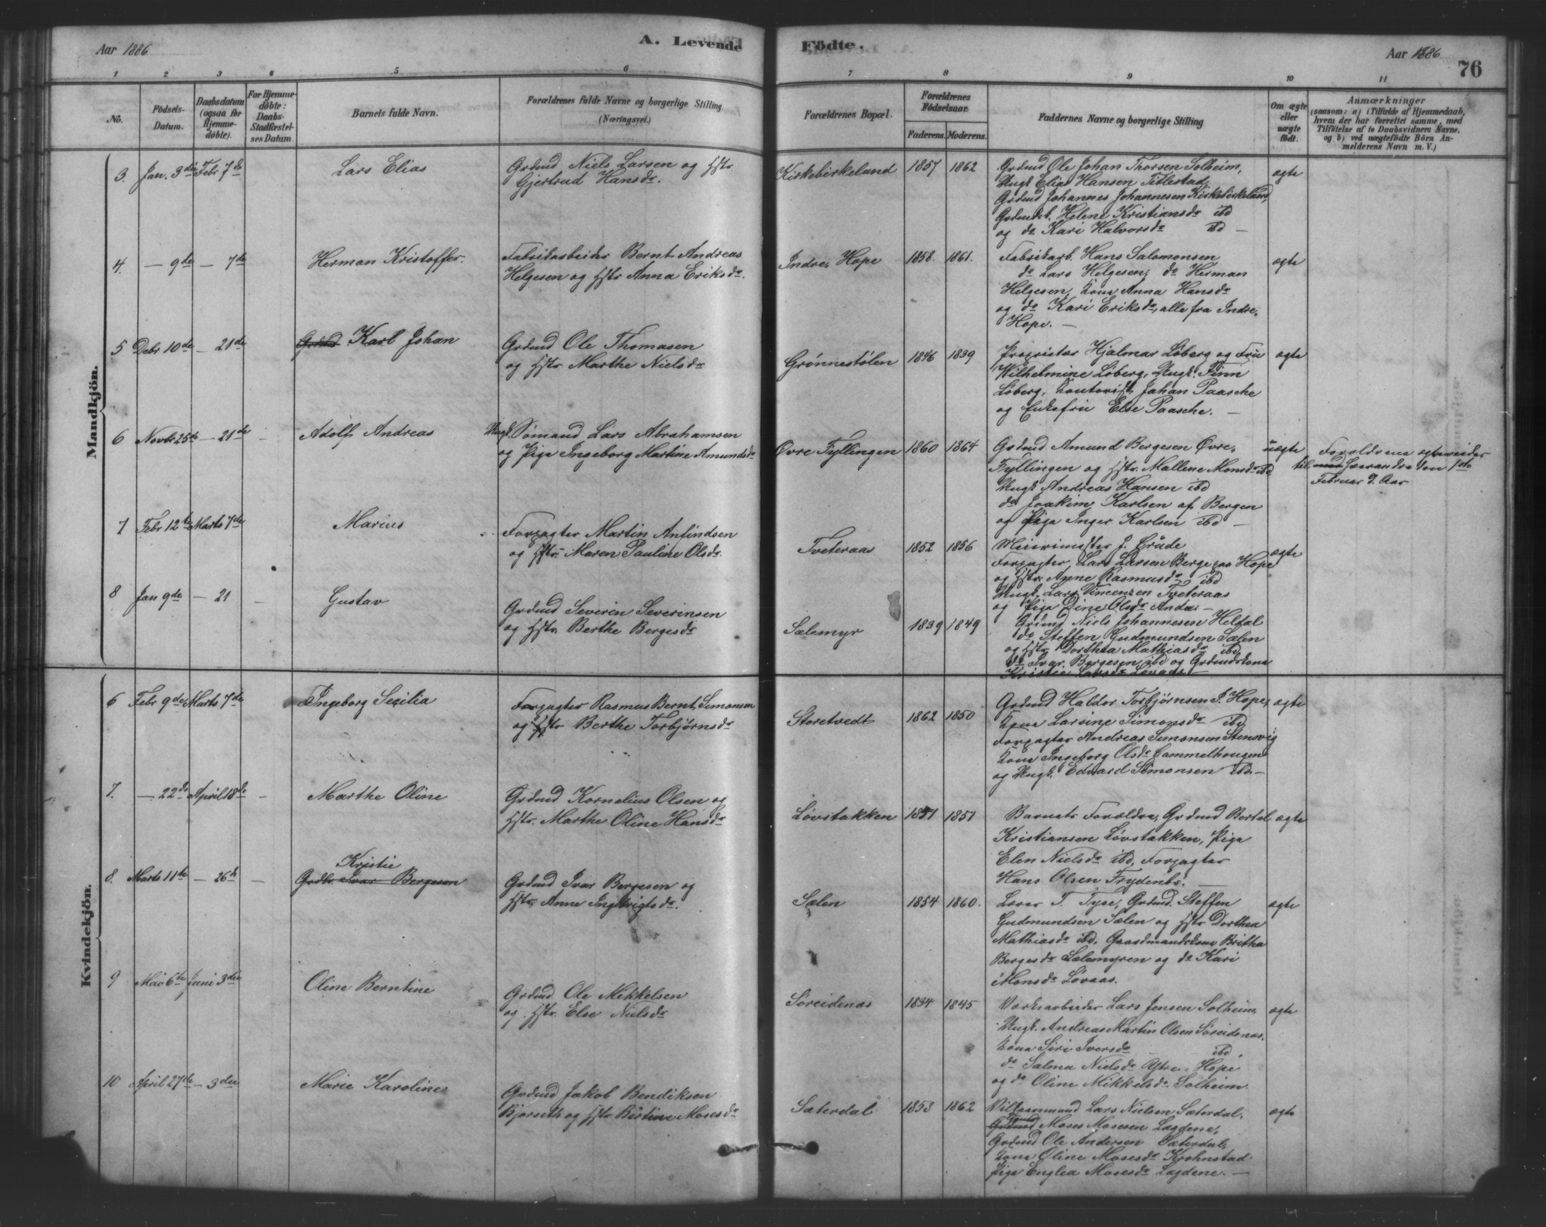 Aar 1886
A. Levende Födte.
Aar 1886
76
1 2 3 4 5 6 7 8 9 10 11
No.
Födsels-Datum.
Daabsdatum (ogsaa for Hjemme-døbte).
For Hjemme-døbte: Daabs-Stadfæstel-ses Datum
Barnets fulde Navn.
Forældrenes fulde Navne og borgerlige Stilling (Næringsvei.)
Forældrenes Bopæl.
Forældrenes Födselsaar.
Faderens. Moderens.
Faddernes Navne og borgerlige Stilling
Om ægte eller uægte født.
Anmærkninger
(saasom: a) i Tilfælde af Hjemmedaab, hvem der har forrettet samme, med Tilføielse af to Daabsvidners Navne, og b) ved uægtefødte Börn An-melderens Navn m. V.)
Mandkjön.
3. Jan. 3de Febr 7de
Lars Elias
Grdmd Niels Larsen og Hstr
Gjertrud Hansdr.
Kirkebirkeland
1857 1862
Grdmd Ole Johan Thorsen Solheim,
Ungk. Elias Hansen Titlestad,
Grdmd Johannes Johannesen Kirkebirkeland,
Helene Kristiansdr ibd
og dr Kari Halvorsdr ibd —
ægte
4. — 9de — 7de
Herman Kristoffer
Fabrikarbeider Bernt Andreas
Helgesen og Hstr Anna Eriksdr.
Indre Hope
1858 1861.
Fabrikarb. Hans Salomonsen
do Lars Helgesen, do Herman
Helgesen, Kone Anna Hansdr
og dr Kari Eriksdr, alle fra Indre
Hope. —
ægte
5 Debr 10de — 21de
Karl Johan
Grdmd Ole Thomasen
og Hstr Marthe Nielsdr
Grønnestølen
1846 1839
Proprietær Hjalmar Løberg og Fru
Wilhelmine Løberg, Ungk. Finn
Løberg, Kontorist Johan Paasche
og Enkefru Else Paasche. —
ægte
6 Novbr 25de — 21de —
Adolf Andreas
Ungk. Sömand Lars Abrahamsen
og Pige Ingeborg Martine Amundsdr
Øvre Fyllingen
1860 1864
Grdmd Amund Bergesen Øvre
Fyllingen og Hstr. Mallene Monsdr ibd
Ungk. Andreas Hansen ibd
do Joakim Karlsen af Bergen
og Pige Inger Karlsen ibd —
uægte
Forældrene
til hverandre den 1ste
Februar d. Aar
7 Febr 12te Marts 7de
Marius
Forpagter Martin Anfindsen
og Hstr. Maren Pauline Olsdr.
Tveteraas
1852 1856
J. Graade
Forpagter Lars Larsen Berge Hope
og Hstr Anne Rasmusdr ibd
Ungk. Lars Simonsen Tveteraas
og Pige Dine Olsdr Andaa —
ægte
8 Jan 9de — 21 —
Gustav
Grdmd Severin Severinsen
og Hstr Berthe Bergesdr
Sælemyr
1839 1849
Grdmd Niels Johannesen Hildal
do Steffen Gudmundsen Sælen
og Hstr Dorthea Mathiasdr ibd
Bergesen ibd og Grdmdskone
Kvindekjön.
6 Febr 9de Marts 7de
Ingeborg Sesilia
Forpagter Rasmus Bernt Simonsen
og Hstr Berthe Torbjørnsdr
Storetvedt
1862 1850
Grdmd Haldor Torbjørnsen I. Hope,
Kone Larsine Simonsdr ibd,
Forpagter Andreas Simonsen Stensvig
Kone Ingeborg Olsdr Gammelhougen
og Ungk. Edvard Simonsen ibd —
ægte
7. — 22de April 18de —
Marthe Oline
Grdmd Kornelius Olsen og
Hstr. Marthe Oline Hansdr
Løvstakken
1851
Barnets Forældre, Grdmd Bertel
Kristiansen Løvstakken, Pige
Elen Nielsdr ibd, Forpagter
Hans Olsen Frydenbr. —
ægte
8. Marts 11te — 26de —
Kristie
Grdbr. Ivar Bergesen
Grdmd Ivar Bergesen og
Hstr. Anne Ingbrigtsdr.
Sælen
1854 1860.
Lærer T. Tyse, Grdmd Steffen
Gudmundsen Sælen og Hstr Dorthea
Mathiasdr ibd, Gaardmandskone Britha
Bergesdr Sælemyren og dr Kari
Monsdr Løvaas.
ægte
9 Mai 6te Juni 3die
Oline Berntine
Grdmd Ole Mikkelsen
og Hstr. Else Nielsdr
Søreidenæs
1834 1845
Værksarbeider Lars Jensen Solheim,
Ungk. Andreas Martin Olsen Søreidenæs,
Kone Siri Iversdr ibd,
dr Salma Nielsdr Hope
og dr Oline Mikkelsdr Solheim
ægte
10 April 27de — 3die
Marie Karoline
Grdmd Jakob Bendiksen
og Hstr Mosesdr
Sæterdal
1853 1862
Lars Nielsen Sæterdal,
Moses Mosesen Lagdene,
Grdmd Ole Andersen Sæterdal,
Kone Oline Mosesdr
Pige Englea Mosesdr Lagdene. —
ægte